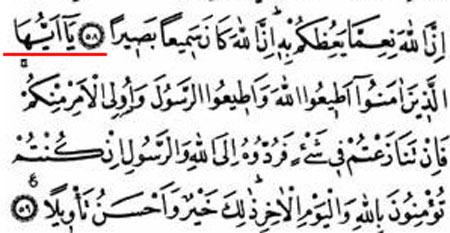 اِنَّ اللّٰهَ نِعِمَّا يَعِظُكُمْ بِهٖ اِنَّ اللّٰهَ كَانَ سَمِيعاً بَصِيراً ﴿٥٨﴾ يَٓا اَيُّهَا
الَّذِينَ اٰمَنُٓوا اَطِيعُوا اللّٰهَ وَاَطِيعُوا الرَّسُولَ وَاُو۬لِي الْاَمْرِ مِنْكُمْ
فَاِنْ تَنَازَعْتُمْ فِي شَيْءٍ فَرُدُّوهُ اِلَى اللّٰهِ وَالرَّسُولِ اِنْ كُنْتُمْ
تُؤْمِنُونَ بِاللّٰهِ وَالْيَوْمِ الْاٰخِرِ ذٰلِكَ خَيْرٌ وَاَحْسَنُ تَأْوِيلاً ﴿٥٩﴾